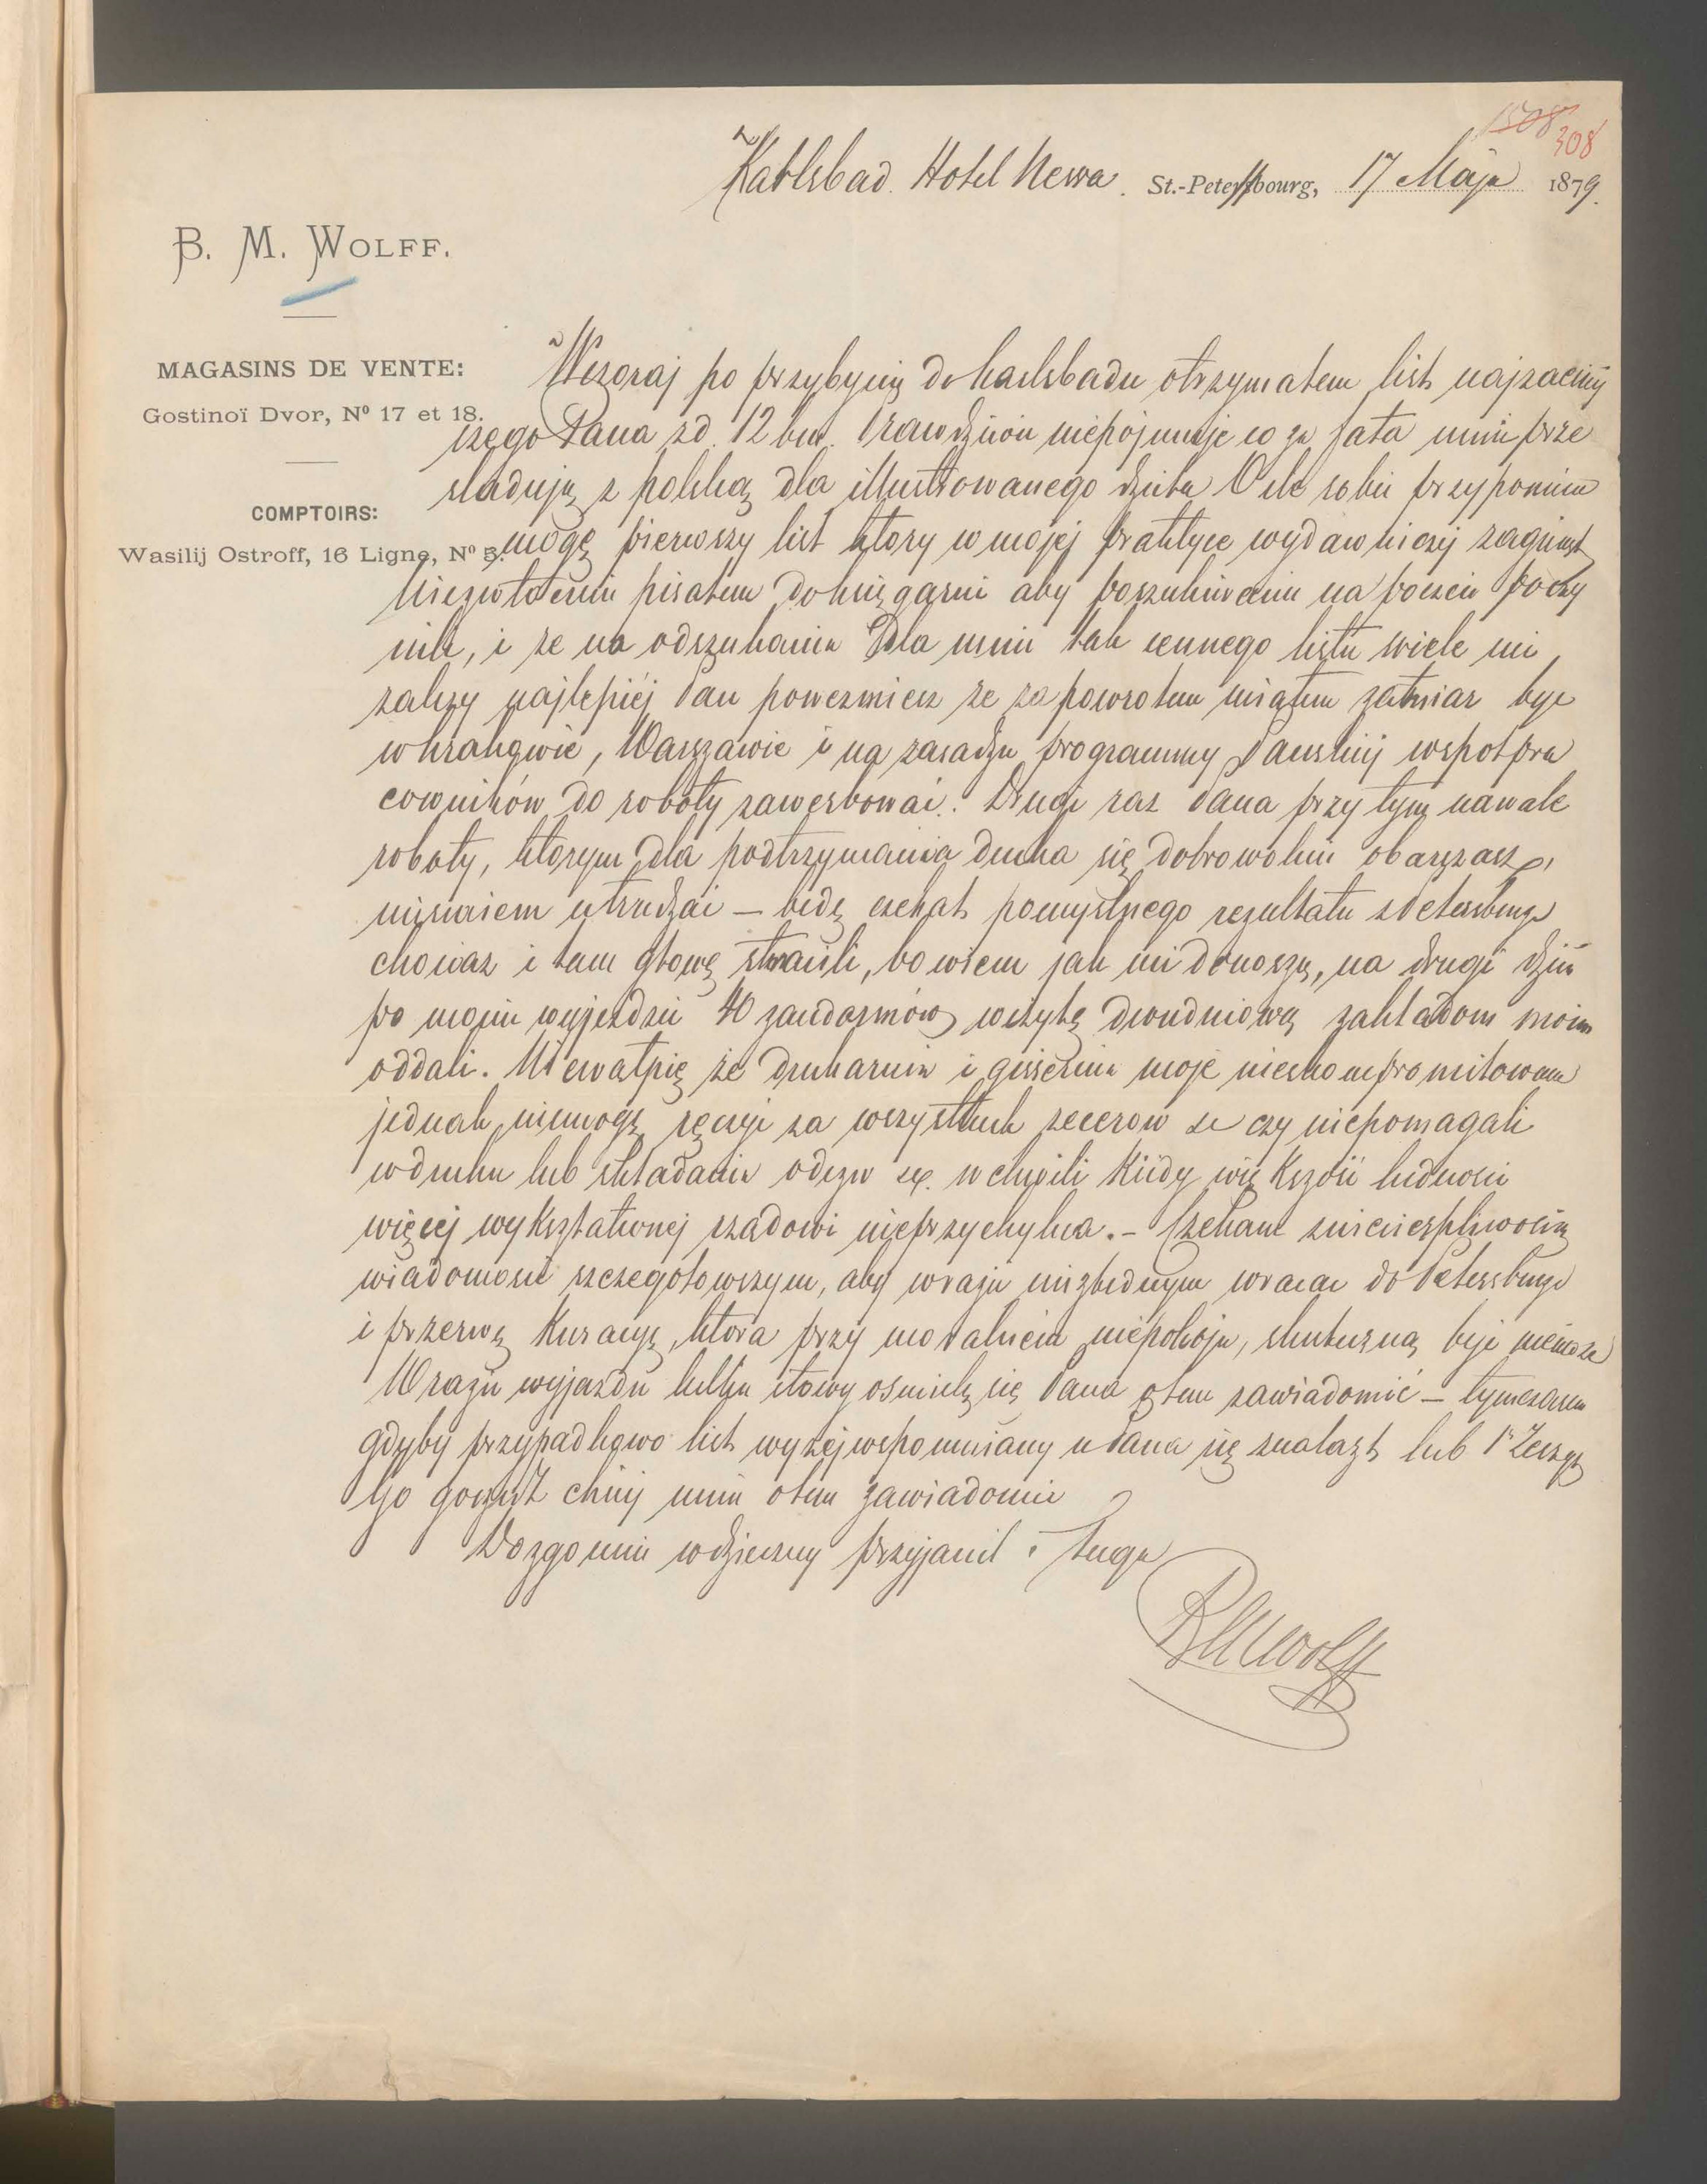 1508
308
Karlsbad. Hotel Newa. St.-Petersbourg, 17 Maja 1879.
B. M. WOLFF.
MAGASINS DE VENTE:
Gostinoï Dvor, Nº 17 et 18.
COMPTOIRS:
Wasilij Ostroff, 16 Ligne, Nº 5.
Wczoraj po przybyciu do Karlsbadu otrzymałem list najzacniej
szego Pana zd. 12 bm. Prawdziwie niepojmuje co za fata mnie prze
sladują z polską dla illustrowanego dzieła O ile sobie przypomniec
mogę pierwszy list ktory w mojej praktyce wydawniczej zaginął
Niezwłocznie pisałem do księgarni aby poszukiwania na poczcie poczy
nili, i że na odszukaniu dla mnie tak cennego listu wiele mi
zależy najlepiéj Pan powezmiesz ze za powrotem miałem zamiar byc
w Krakowie, Warszawie i na zasadzie programmy Panskiej wspołpra
cowników do roboty zawerbować. Drugi raz Pana przy tym nawale
roboty, ktorym dla podtrzymania ducha się dobrowolnie obarczasz,
nieśmiem utrudzać — będę czekał pomyślnego rezultatu z Petersburga
chociaz i tam głowę stracili, bowiem jak mi donoszą, na drugi dzień
po moim wyjezdzie 40 zandarmów wizytę dwudniową zakładom moim
oddali. Niewątpię że drukarnia i gisernia moje nieskompromitowane
jednak niemogę ręczyc za wszystkich zecerow ze czy niepomagali
w druku lub składaniu odezw etc. w chwili kiedy większość ludnosci
więcej wykształconej rządowi nieprzychylna. — Czekam z niecierpliwością
wiadomosci szczegołowszym, aby w razie niezbędnym wracac do Petersburga
i przerwę kuracyę, ktora przy moralnem niepokoju, skuteczną byc niemoze
W razie wyjazdu kilku słowy osmielę się Pana o tem zawiadomić — tymczasem
gdyby przypadkowo list wyzej wspomniany u Pana się znalazł lub 1y Zeszyt
chciej mnie o tem zawiadomic
Dozgonnie wdzieczny przyjaciel i sługa
BMWolff